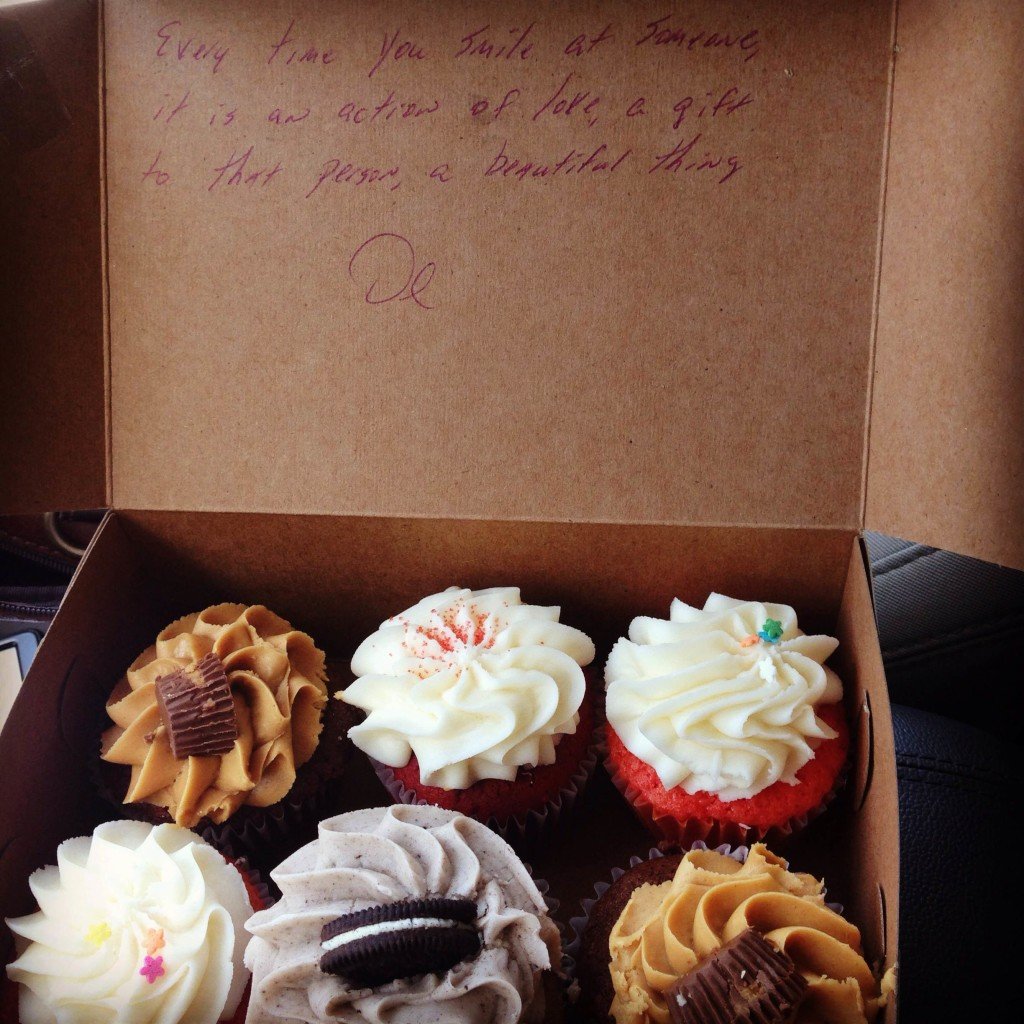 Every time you smile at someone,
it is an action of love, a gift
to that person, a beautiful thing